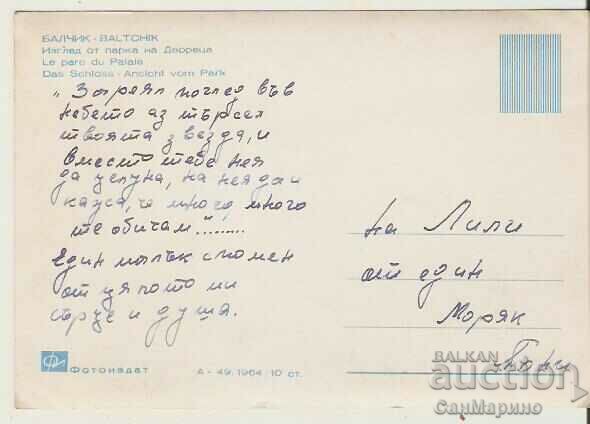 БАЛЧИК - BALTCHIK
Изглед от парка на Двореца
Le parc du Palais
Das Schloss - Ansicht vom Park
„Зареял поглед във
небето аз търсел
твоята звезда, и
вместо тебе нея
да целуна, на нея да и
кажа, че много, много
те обичам"........
Един малък спомен
от цялото ми
сърце и душа.
на Лили
от един
Моряк
Фотоиздат
А - 49, 1964 / 10 ст.
BALKAN
auction
СанМарино